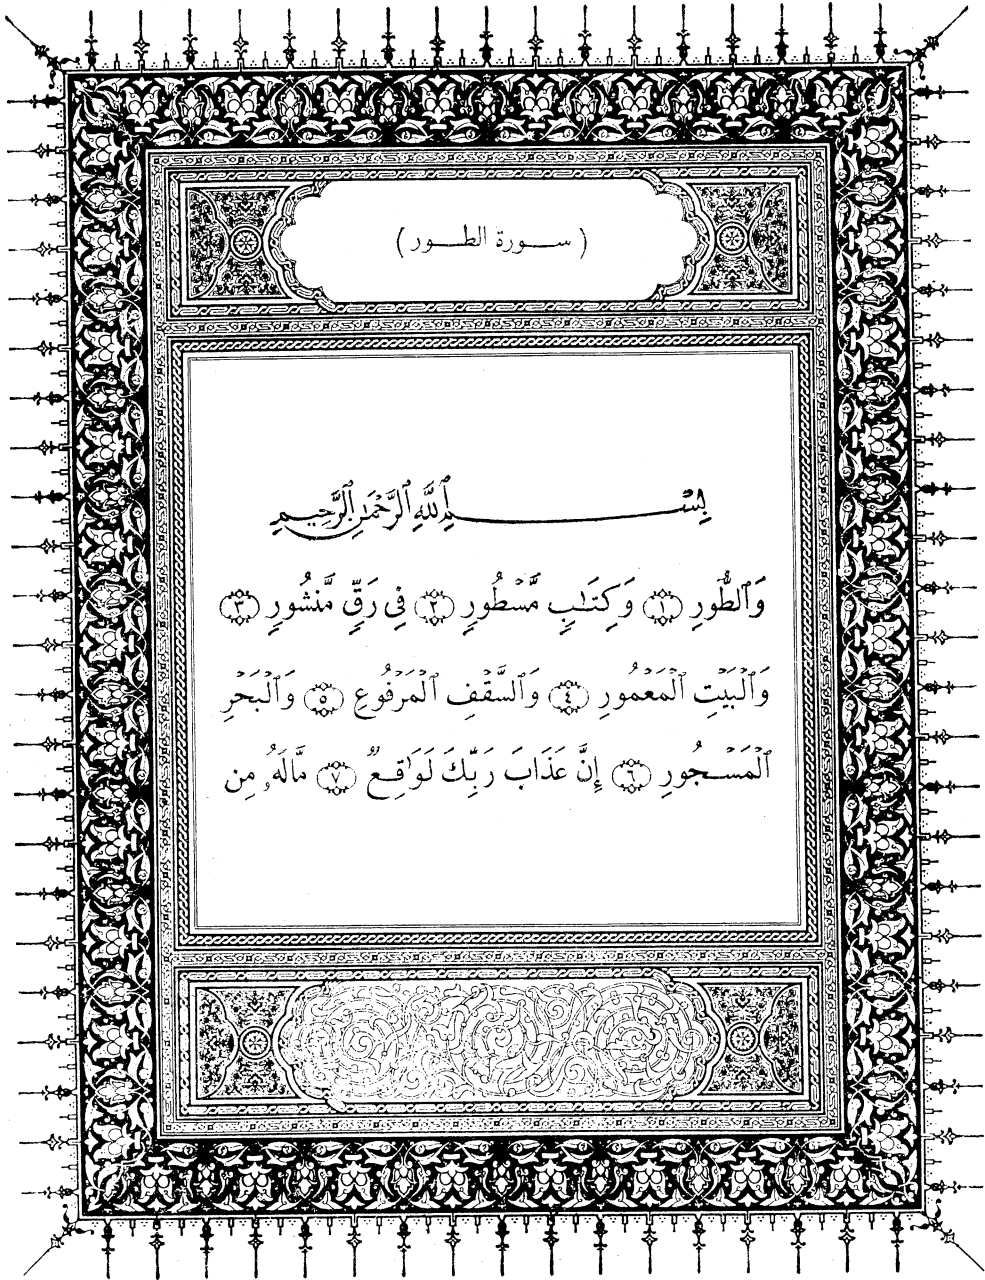 ( ســـورة الطـــور )
بِسْـــــــــمِ ٱللَّهِ ٱلرَّحْمَٰنِ ٱلرَّحِيمِ
وَٱلطُّورِ ١ وَكِتَٰبٍ مَّسْطُورٍ ٢ فِى رَقٍّ مَّنشُورٍ ٣
وَٱلْبَيْتِ ٱلْمَعْمُورِ ٤ وَٱلسَّقْفِ ٱلْمَرْفُوعِ ٥ وَٱلْبَحْرِ
ٱلْمَسْجُورِ ٦ إِنَّ عَذَابَ رَبِّكَ لَوَٰقِعٌ ٧ مَّا لَهُۥ مِن